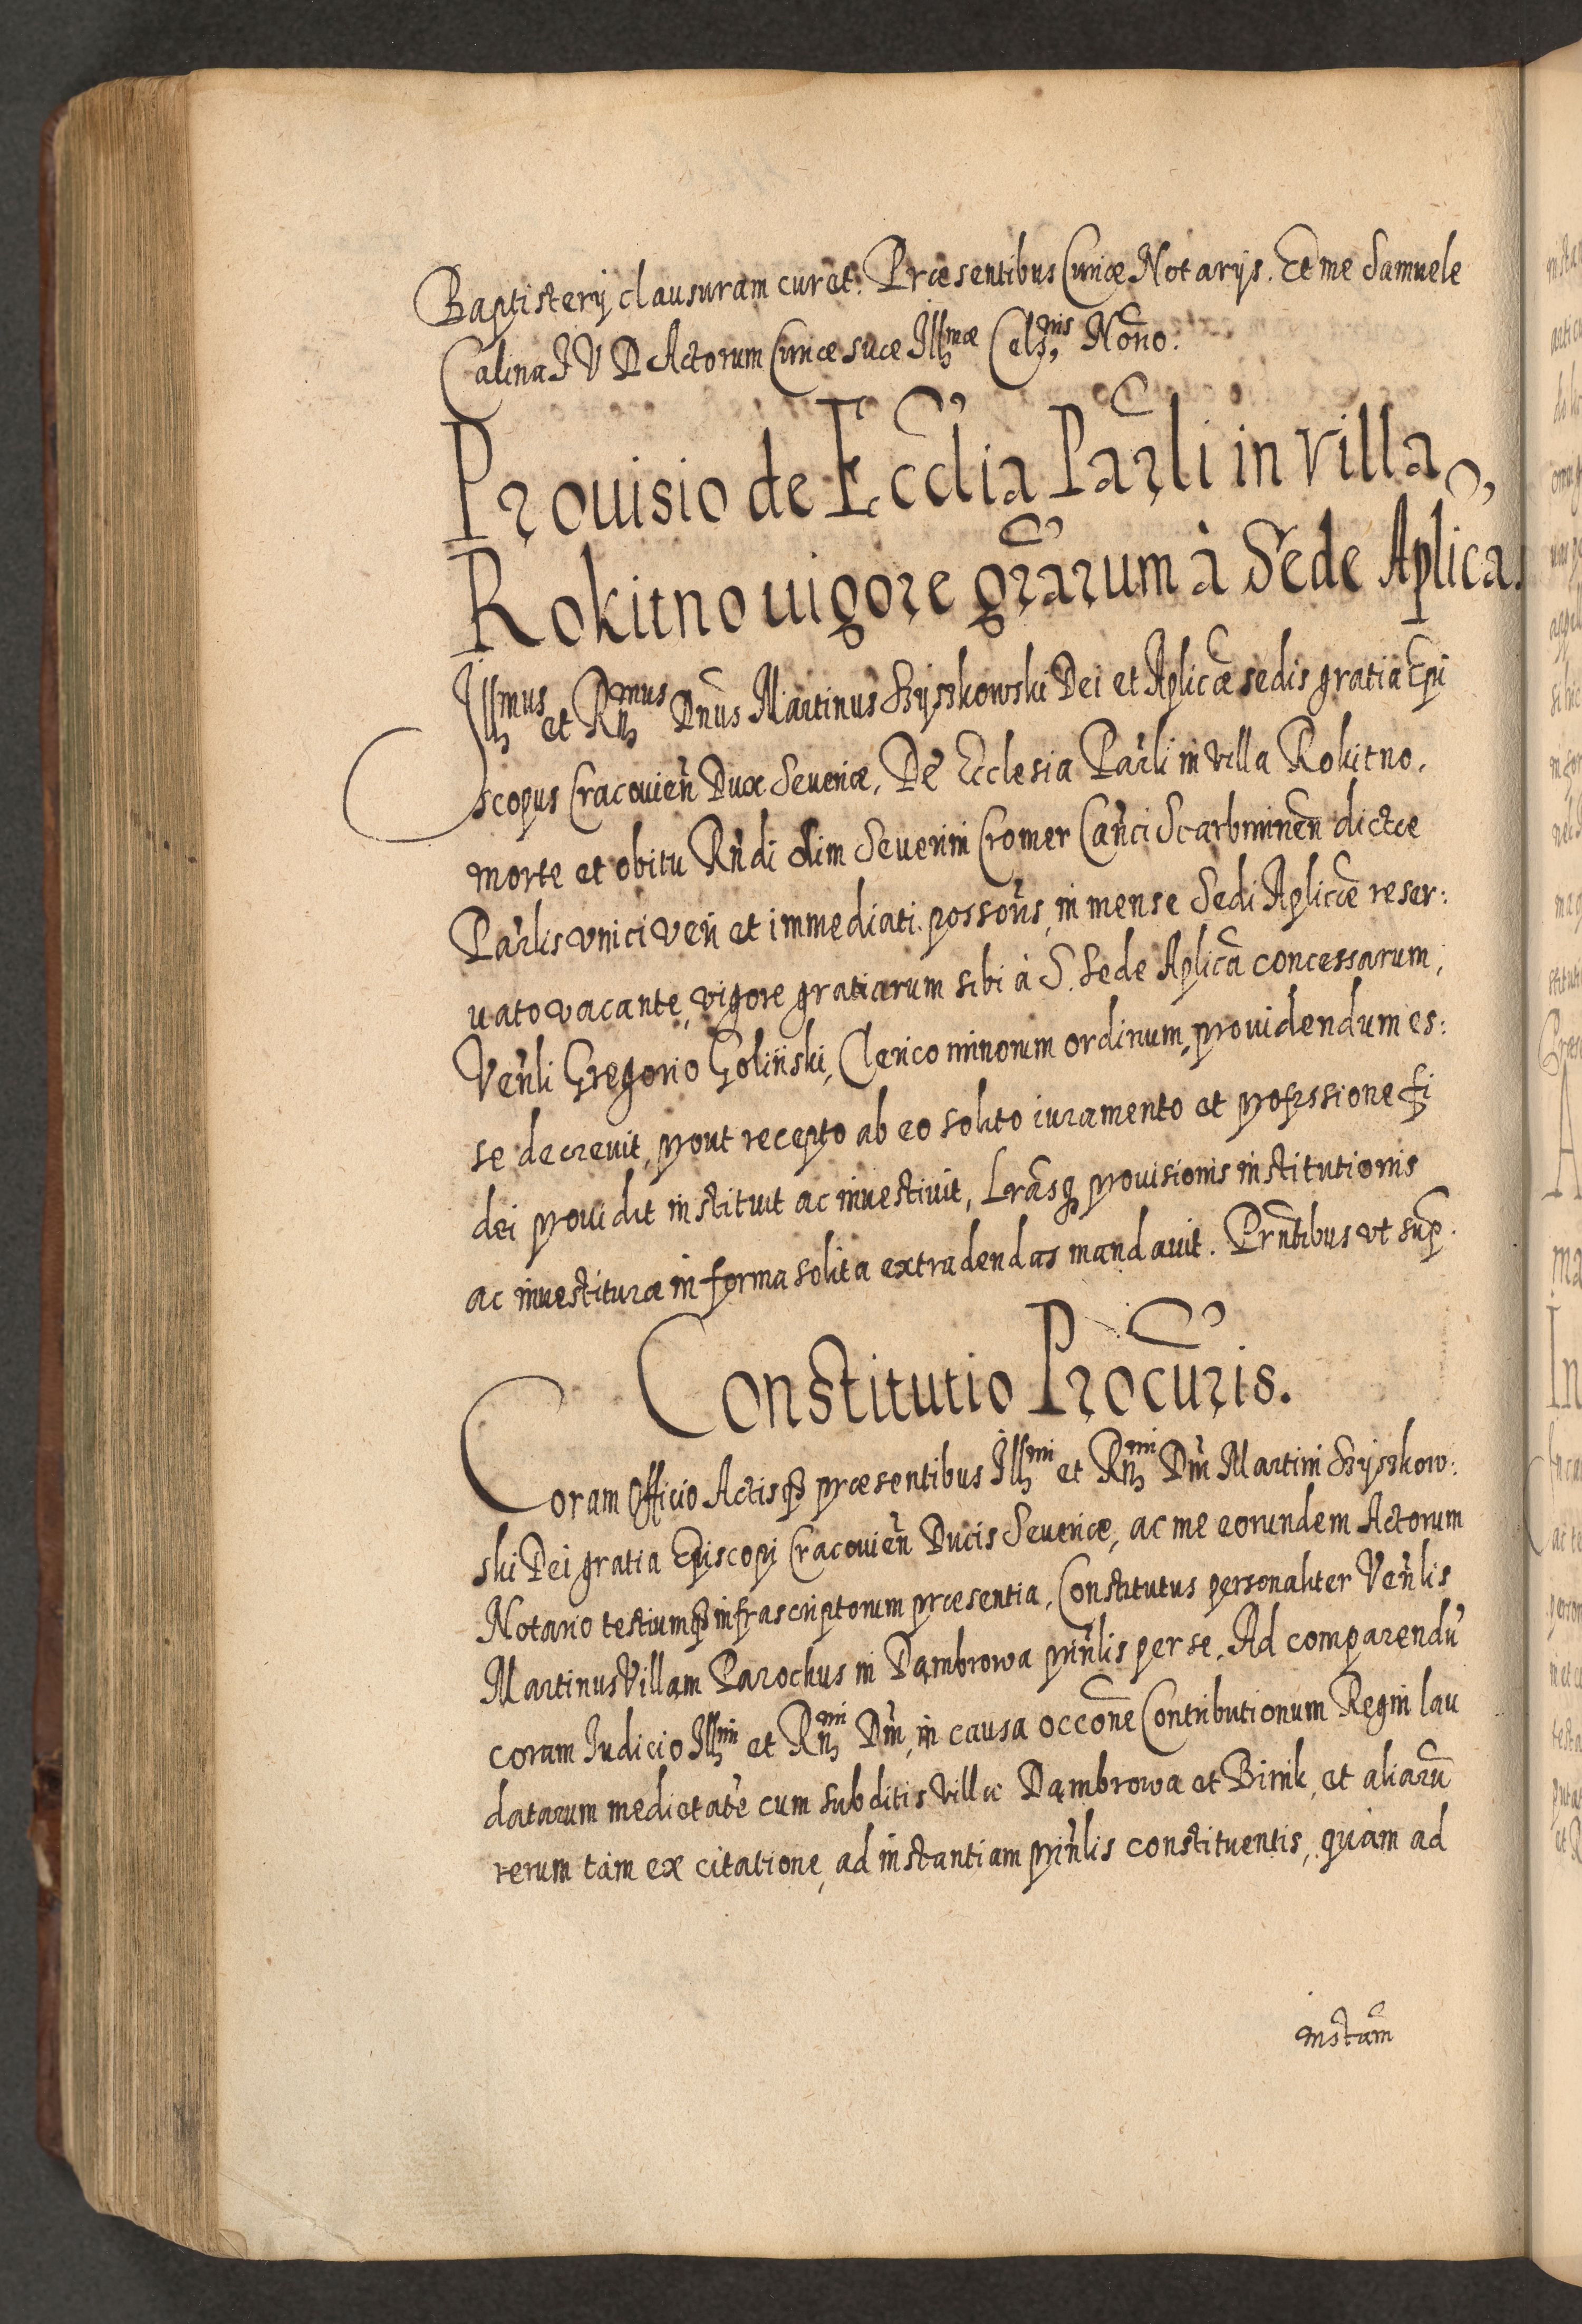 Baptisterij clausuram curet. Præsentibus Curiæ Notarijs. Et me Samuele
Calina I V D Actorum Curiæ suæ Illmæ Celsnis Nõno.
Prouisio de Ecclia Parli in villa
Rokitno uigore grarum à Sede Aplica.
Illmus et Rmus Dnus Martinus Szyszkowski Dei et Aplicæ sedis gratia Epi
scopus Cracouien Dux Seueriæ, De Ecclesia Parli in villa Rokitno,
morte et obitu Rndi olim Seuerini Cromer Canci Scarbimirien dictæ
Parlis vnici veri et immediati possoris, in mense Sedi Aplicæ reser:
uato vacante, vigore gratiarum sibi à S. Sede Aplica concessarum,
Venli Gregorio Goliński, Clerico minorum ordinum, prouidendum es:
se decreuit, prout recepto ab eo solito iuramento et professione fi
dei prouidit instituit ac inuestiuit, Lrasq prouisionis institutionis
ac inuestituræ in forma solita extradendas mandauit. Prntibus vt sup.
Constitutio Procuris.
Coram Officio Actisq præsentibus Illmi et Rmi Dni Martini Szyszkow:
ski Dei gratia Episcopi Cracouien Ducis Seueriæ, ac me eorundem Actorum
Notario testiumq infrascriptorum præsentia, Constitutus personaliter Venlis
Martinus Villam Parochus in Dąmbrowa prinlis per se, Ad comparendu
coram Iudicio Illmi et Rmi Dni, in causa occone Contributionum Regni lau
datarum medietate cum subditis villæ Dąmbrowa et Birnik, et aliaru
rerum tàm ex citatione, ad instantiam prinlis constituentis, quàm ad
instam